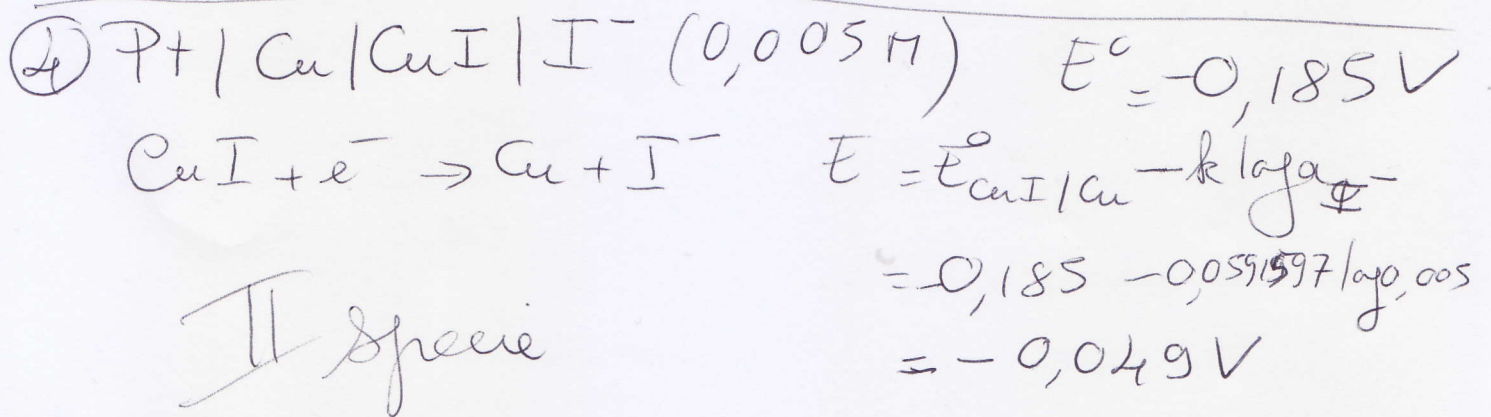 ④ Pt | Cu | CuI | I⁻ (0,005 M) E° = -0,185 V
CuI + e⁻ → Cu + I⁻ E = E°CuI/Cu - k log aI⁻
= -0,185 - 0,0591597 log 0,005
II specie
= -0,049 V